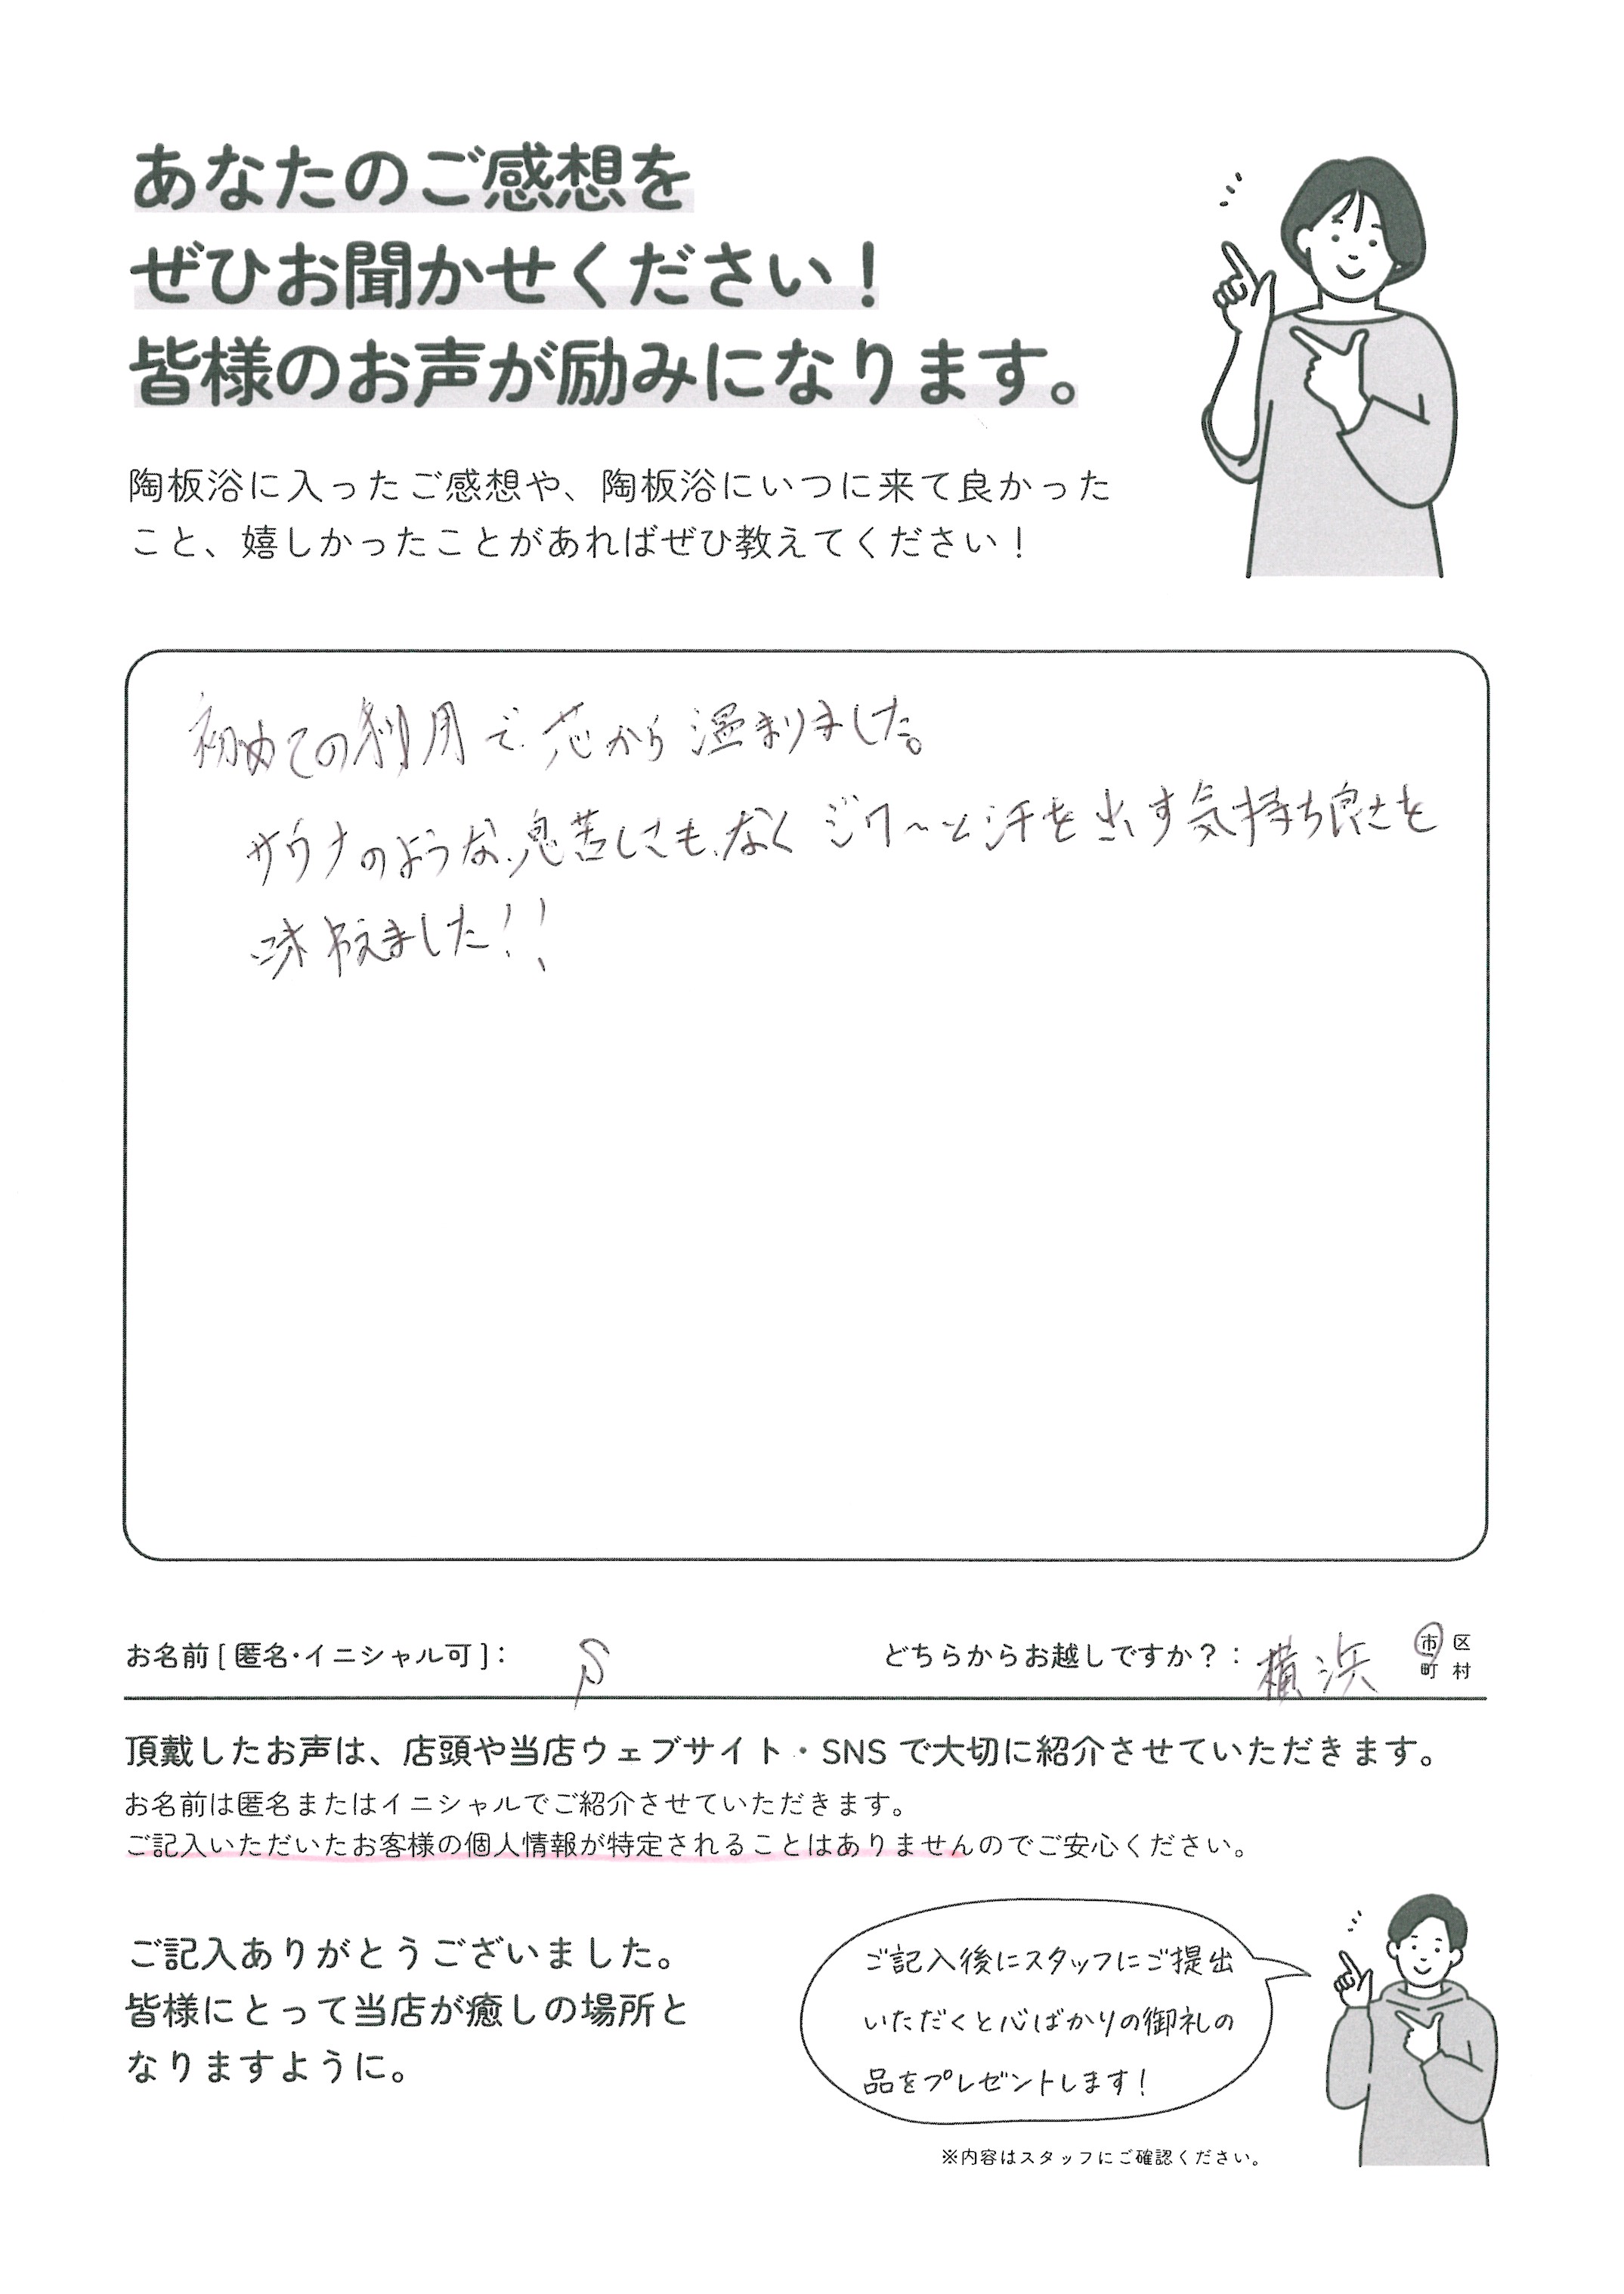 あなたのご感想を
ぜひお聞かせください！
皆様のお声が励みになります。
陶板浴に入ったご感想や、陶板浴にいつに来て良かった
こと、嬉しかったことがあればぜひ教えてください！
初めての利用で芯から温まりました。
サウナのような息苦しさもなくジワ〜と汗を出す気持ち良さを
味わえました！！
お名前 [ 匿名・イニシャル可 ]： S
どちらからお越しですか？： 横浜 市 区
町 村
頂戴したお声は、店頭や当店ウェブサイト・SNS で大切に紹介させていただきます。
お名前は匿名またはイニシャルでご紹介させていただきます。
ご記入いただいたお客様の個人情報が特定されることはありませんのでご安心ください。
ご記入ありがとうございました。
皆様にとって当店が癒しの場所と
なりますように。
ご記入後にスタッフにご提出
いただくと心ばかりの御礼の
品をプレゼントします！
※内容はスタッフにご確認ください。